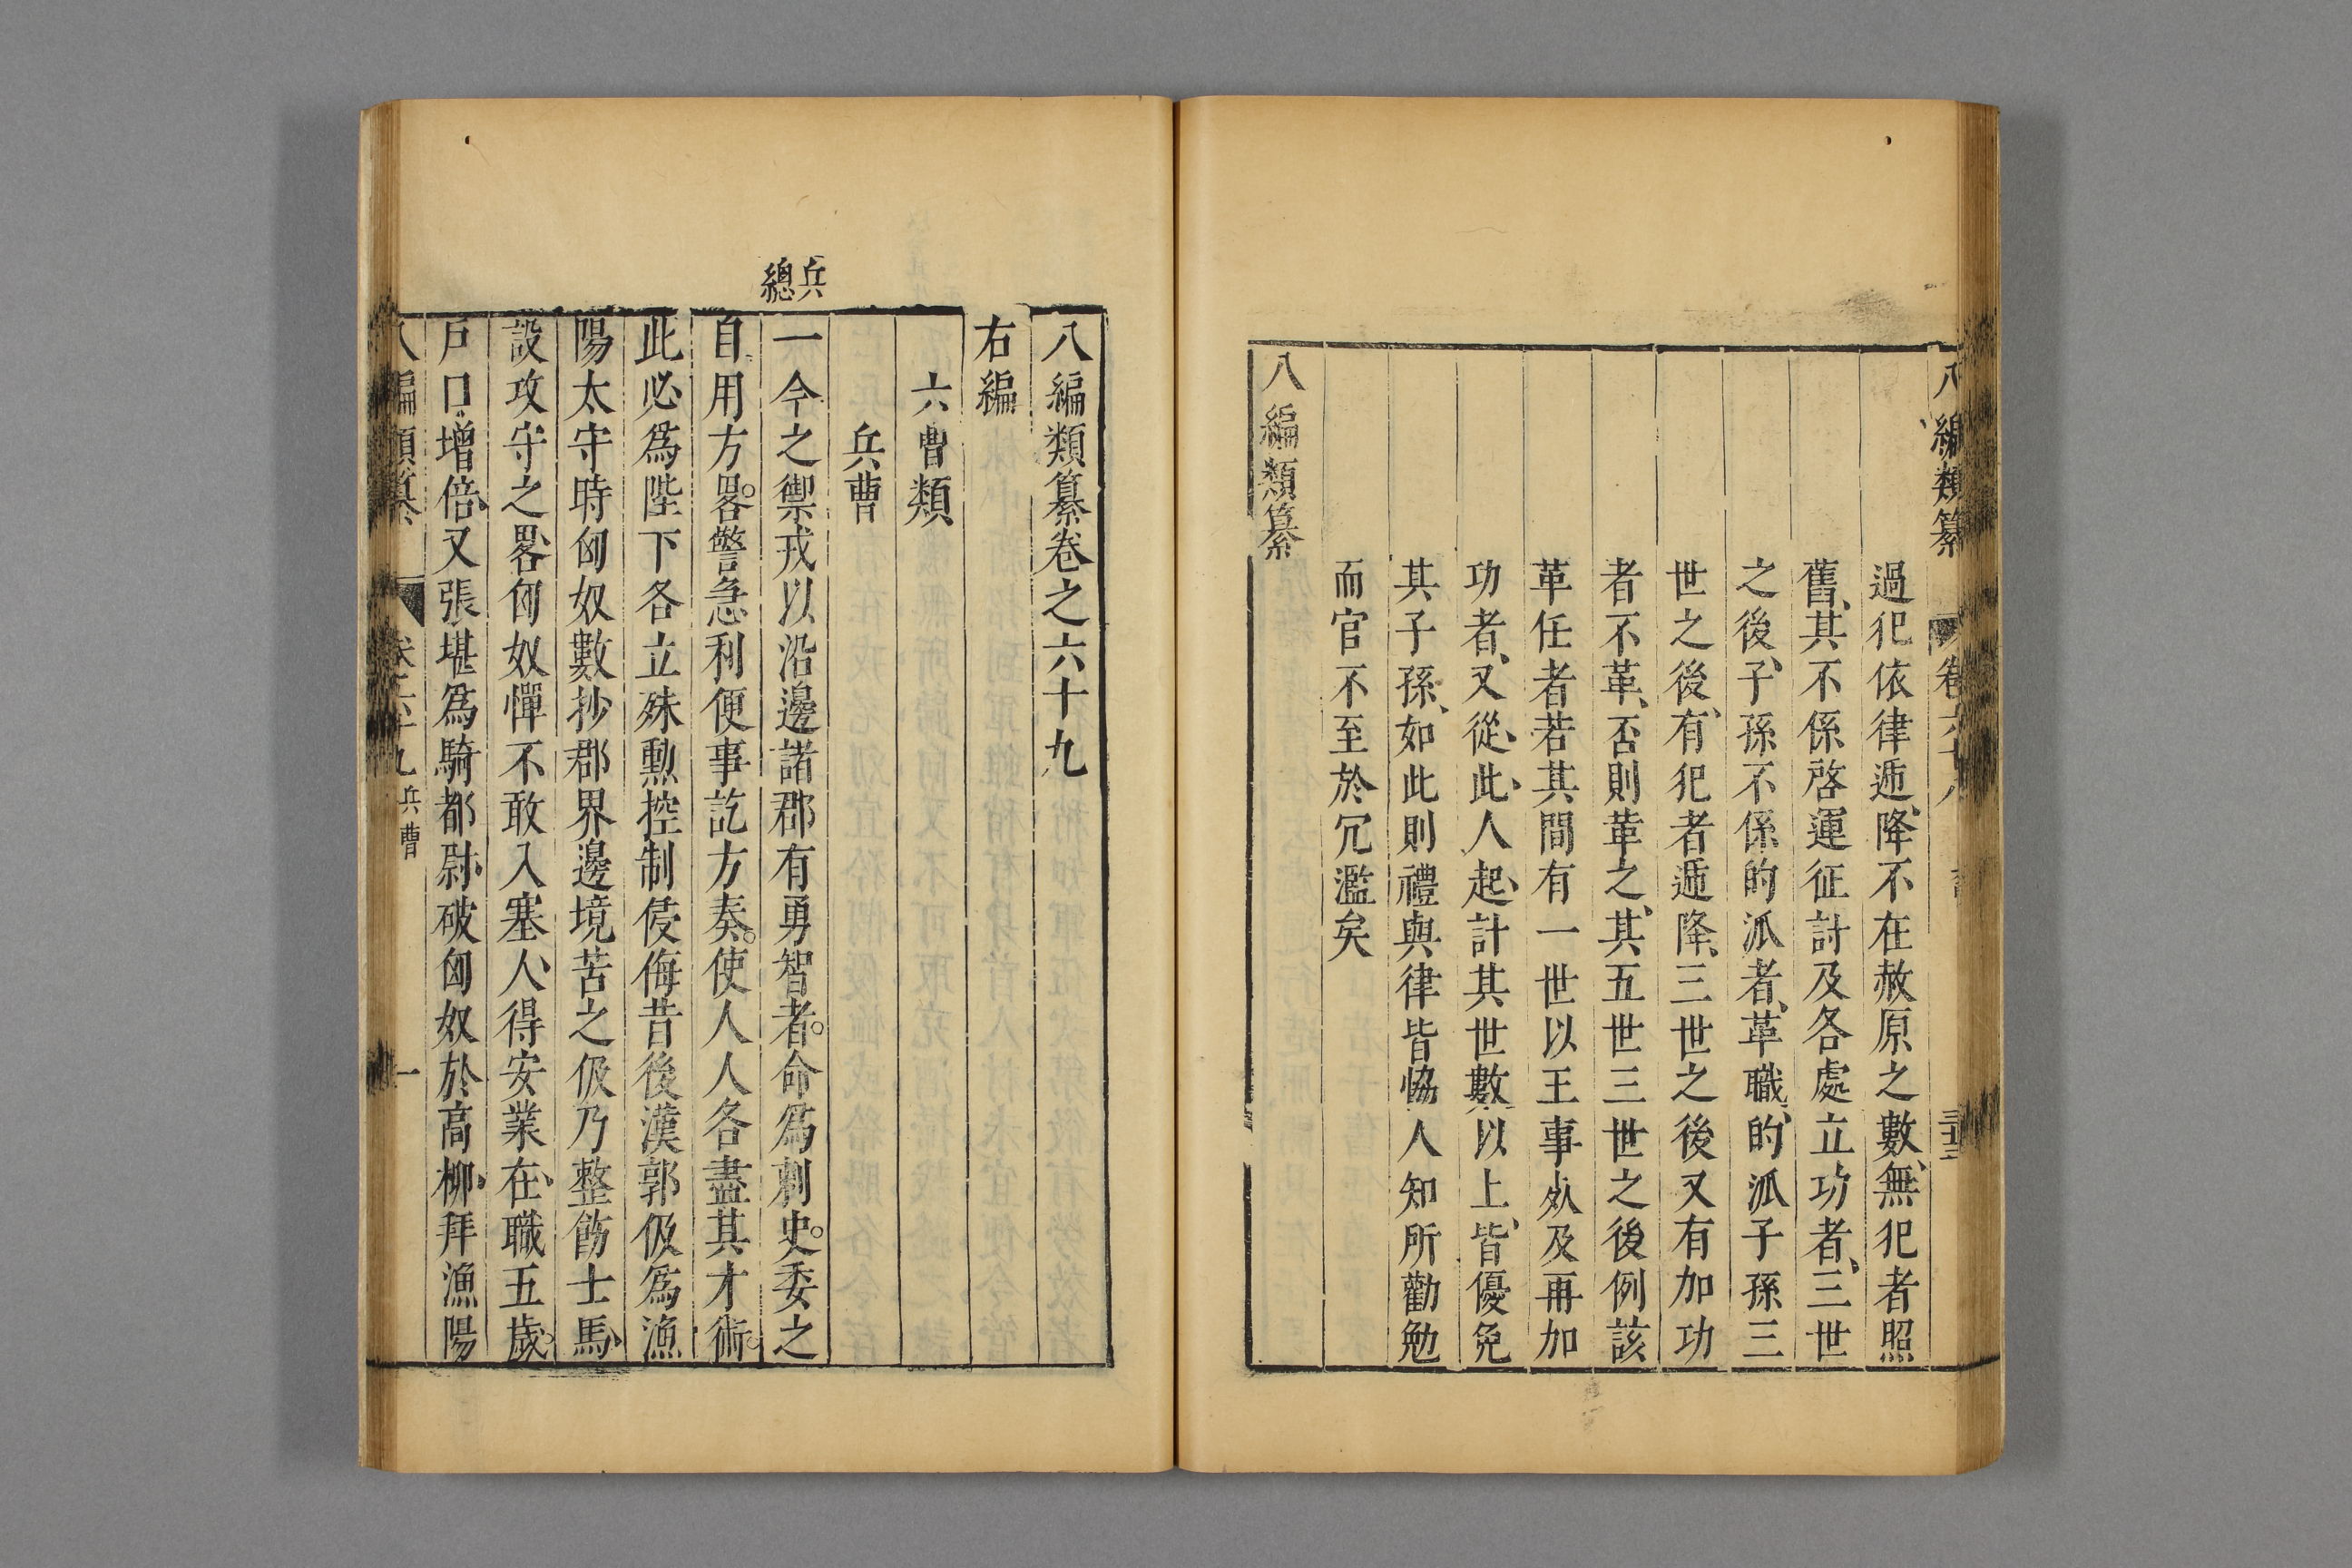 八編類纂 卷六十八
過犯依律遞降不在赦原之數無犯者照
舊其不係啓運征討及各處立功者三世
之後子孫不係的派者革職的派子孫三
世之後有犯者遞降三世之後又有加功
者不革否則革之其五世三世之後例該
革任者若其間有一世以王事死及再加
功者又從此人起計其世數以上皆優免
其子孫如此則禮與律皆恊人知所勸勉
而官不至於冗濫矣
八編類纂
八編類纂卷之六十九
右編
六曹類
兵曹
兵總
一今之禦戎以沿邊諸郡有勇智者命爲刺史委之
自用方畧警急利便事訖方奏使人人各盡其才術
此必爲陛下各立殊勳控制侵侮昔後漢郭伋爲漁
陽太守時匈奴數抄郡界邊境苦之伋乃整飭士馬
設攻守之畧匈奴憚不敢入塞人得安業在職五歲
戶口增倍又張堪爲騎都尉破匈奴於高柳拜漁陽
八編類纂 卷六十九 兵曹 一